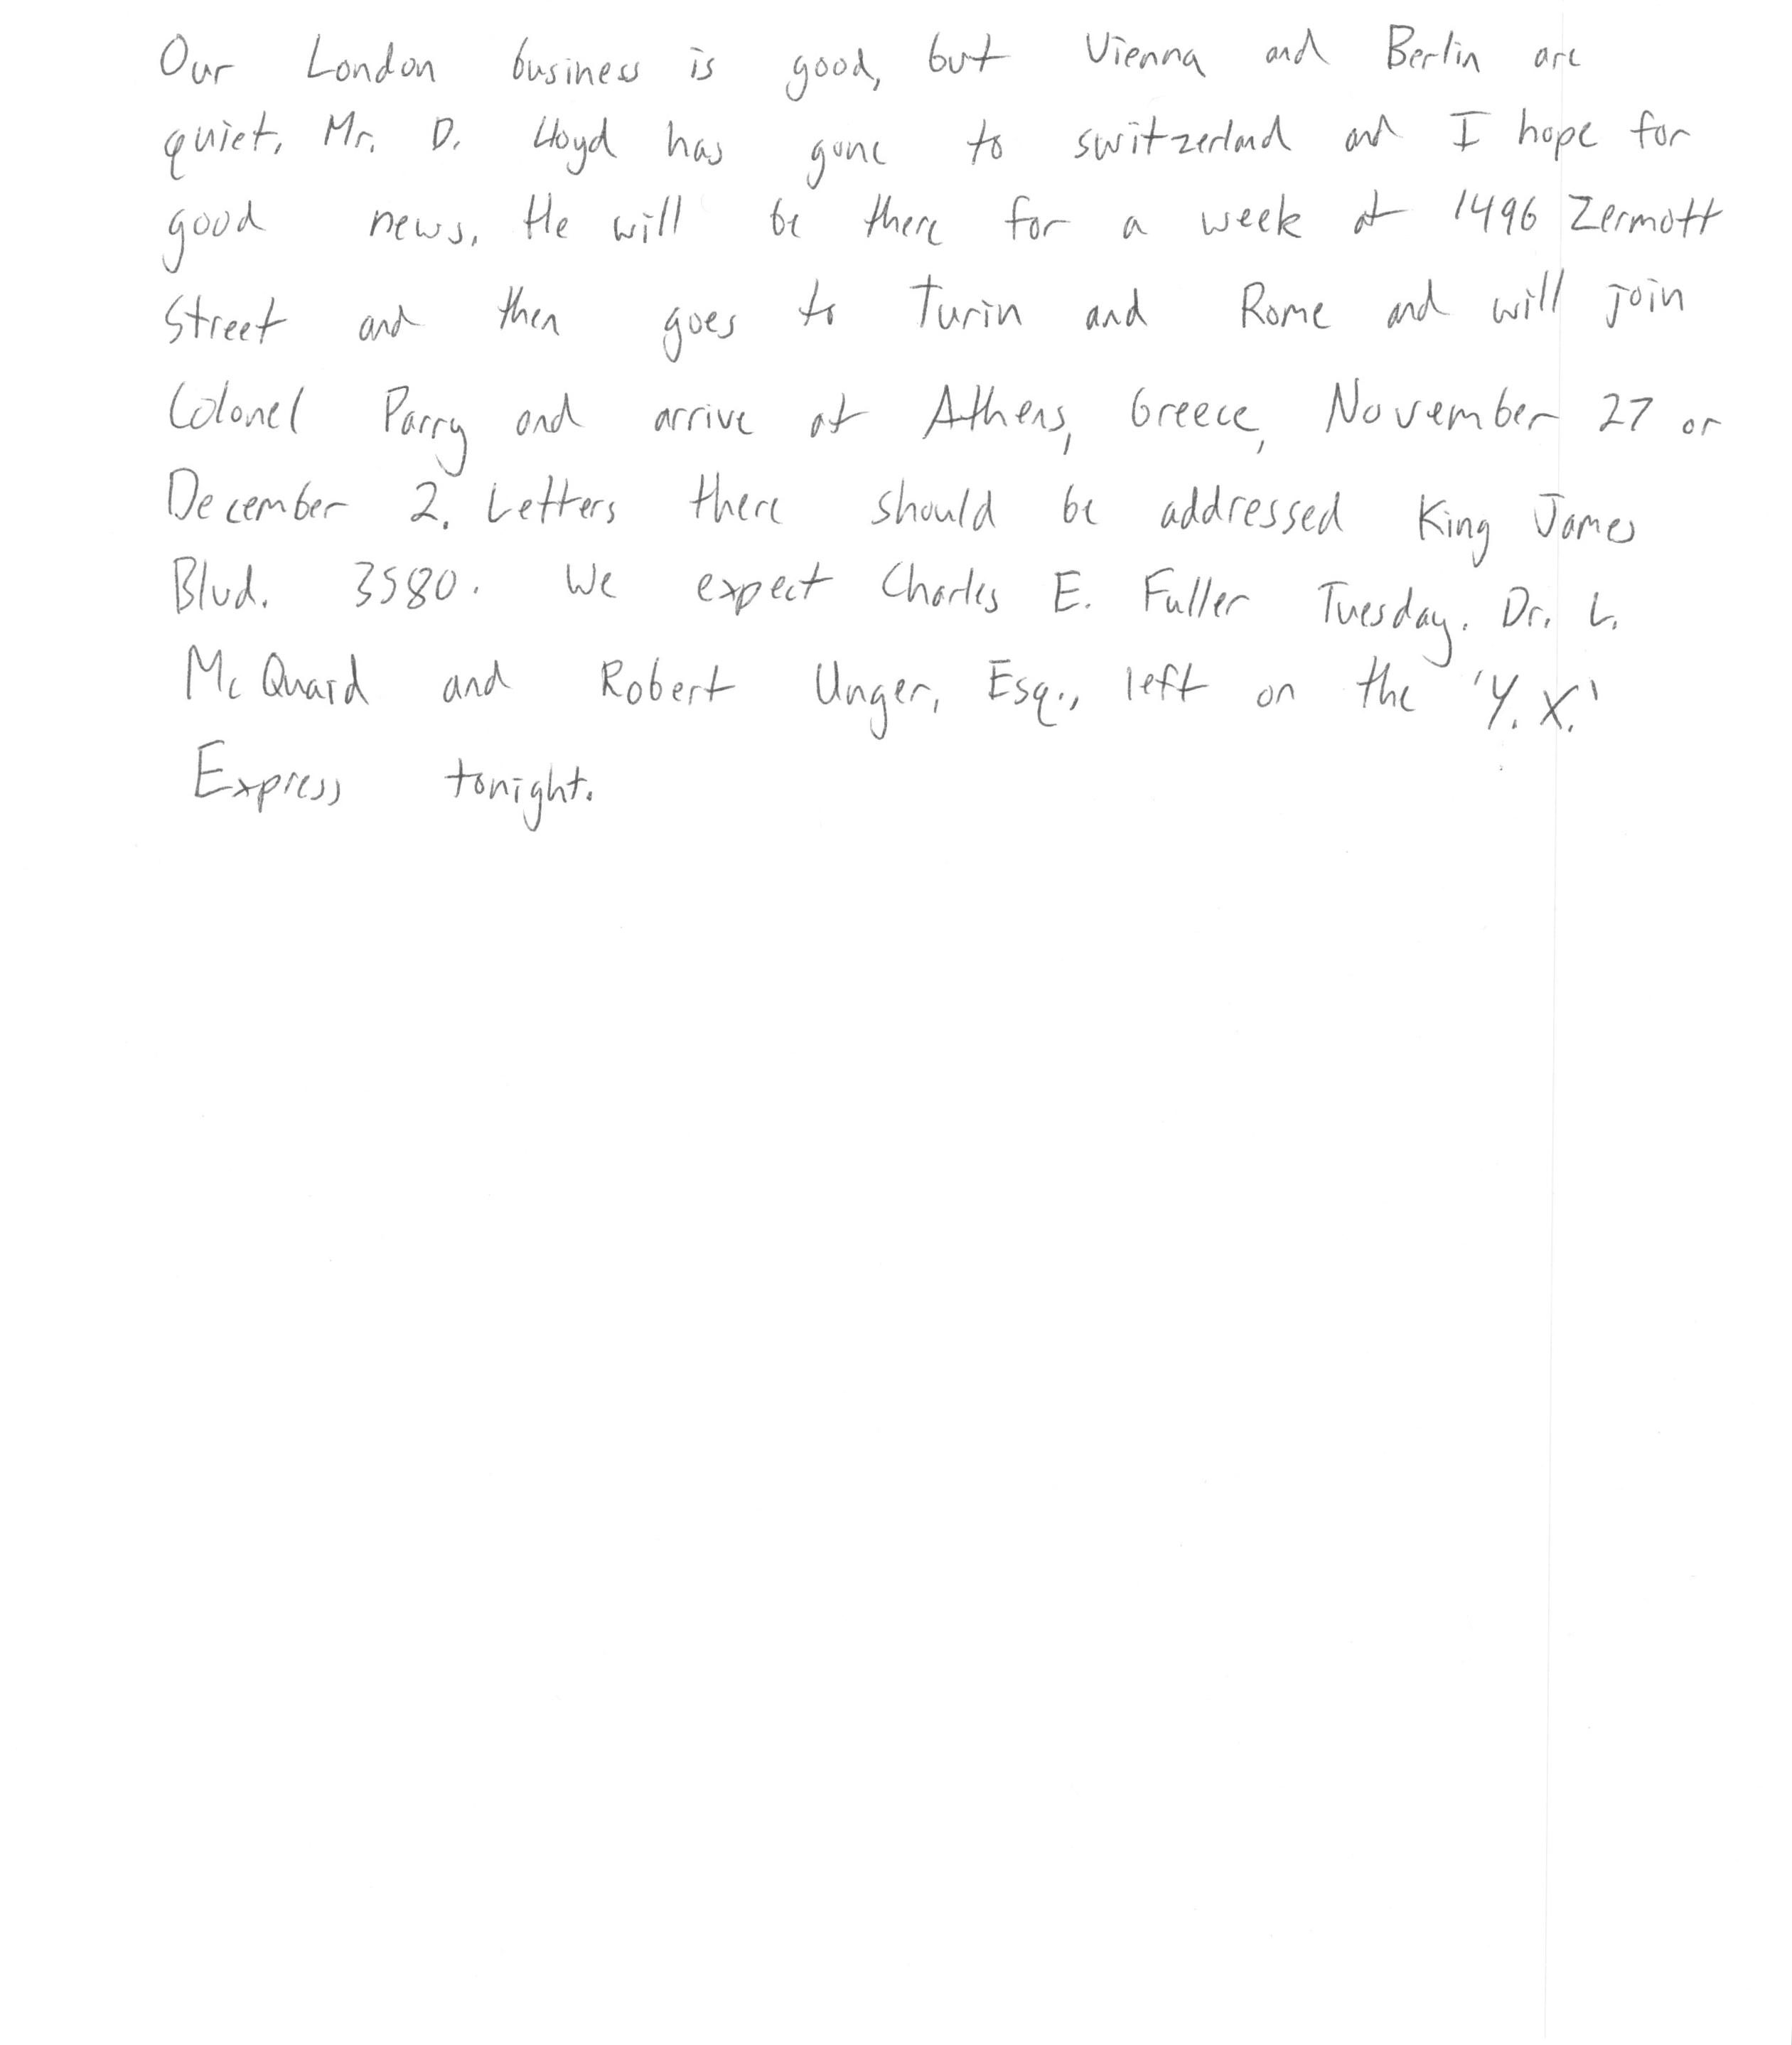 Our London business is good, but Vienna and Berlin are
quiet. Mr. D. Lloyd has gone to switzerland and I hope for
good news. He will be there for a week at 1496 Zermott
Street and then goes to Turin and Rome and will join
Colonel Parry and arrive at Athens, Greece, November 27 or
December 2. Letters there should be addressed King James
Blvd. 3580. We expect Charles E. Fuller Tuesday. Dr. L.
McQuaid and Robert Unger, Esq., left on the 'Y.X.'
Express tonight.